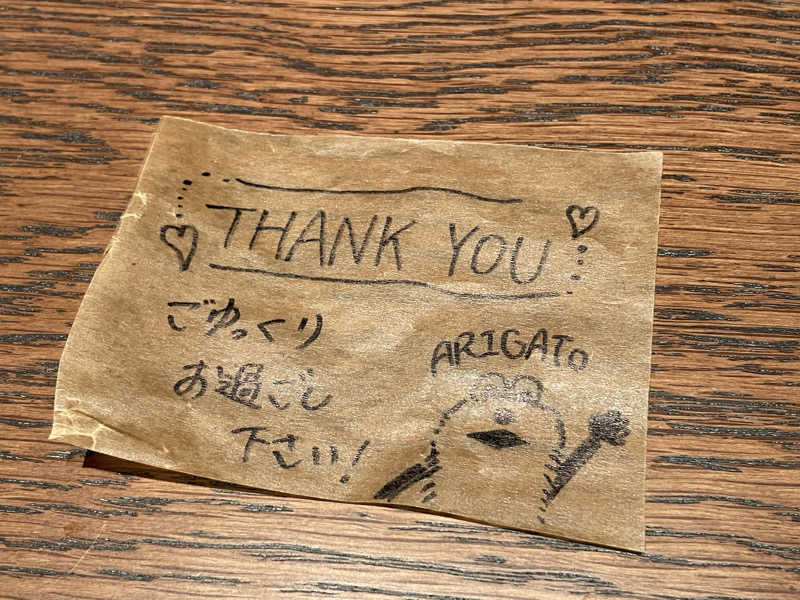 THANK YOU
ごゆっくり
お過ごし
下さい!
ARIGATO